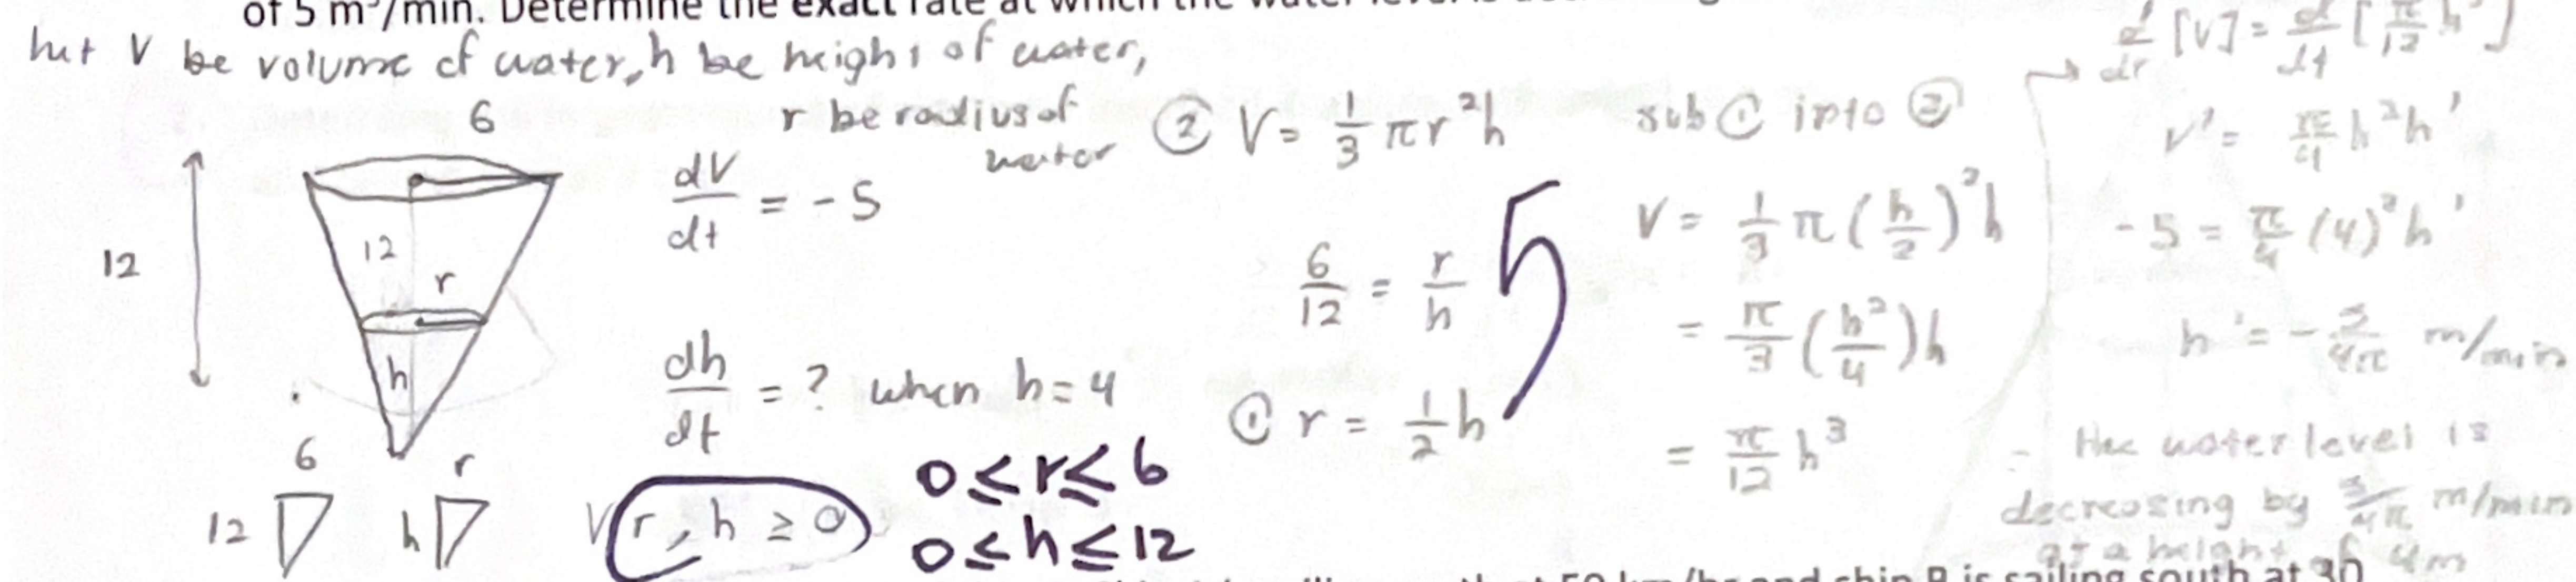 of 5 m³/min. Determine the exact rate at which the water level is
let V be volume of water, h be height of water,
r be radius of
water
6
12
12
r
h
6 r
12 h
dV/dt = - 5
dh/dt = ? when h = 4
V r, h ≥ 0
0 ≤ r ≤ 6
0 ≤ h ≤ 12
② V = 1/3 πr²h
6/12 = r/h
① r = 1/2 h
5
sub ① into ②
V = 1/3 π(h/2)²h
= π/3 (h²/4)h
= π/12 h³
→ d/dt [V] = d/dt [π/12 h³]
V' = π/4 h²h'
-5 = π/4 (4)²h'
h' = - 5/4π m/min
∴ the water level is
decreasing by 5/4π m/min
at a height of 4m
50 km/hr and ship B is sailing south at 30